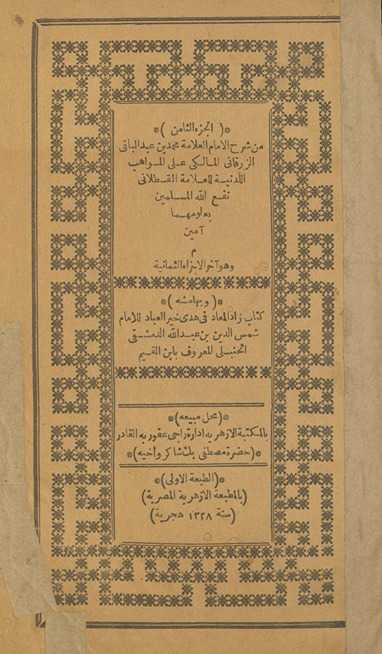 *( الجزء الثامن )*
من شرح الامام العلامة محمد بن عبد الباقى
الزرقانى المالكى على المواهب
اللدنية للعلامة القسطلانى
نفع الله المسلمين
بعلومهما
آمين
م
وهو آخر الاجزاء الثمانية
*( وبهامشه )*
كتاب زاد المعاد فى هدى خير العباد للامام
شمس الدين بن عبد الله الدمشقى
الحنبلى المعروف بابن القيم
*(محل مبيعه)*
بالمكتبة الازهريه ادارة راجى عفو ربه القادر
*(حضرة مصطفى بك شاكر وأخيه)*
*(الطبعة الاولى)*
(بالمطبعة الازهرية المصرية)
(سنة ١٣٢٨ هجرية)